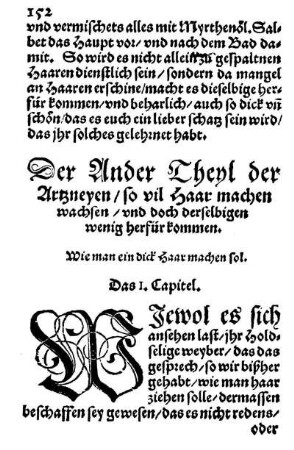 152
vnd vermischets alles mit Myrthenöl. Sal-
bet das Haupt vor/vnd nach dem Bad da-
mit. So wird es nicht allein gespaltnen
Haaren dienstlich sein/sondern da mangel
an Haaren erschine/macht es dieselbige her-
für kommen/vnd beharlich/auch so dick vñ
schön/das es euch ein lieber schatz sein wird/
das jhr solches gelehrnet habt.
Der Ander Theyl der
Artzneyen/so vil Haar machen
wachsen/vnd doch derselbigen
wenig herfür kommen.
Wie man ein dick Haar machen sol.
Das 1. Capitel.
WJewol es sich
ansehen last/jhr Hold-
selige weyber/das das
gesprech/so wir bißher
gehabt/wie man haar
ziehen solle/dermassen
beschaffen sey gewesen/das es nicht redens-
oder